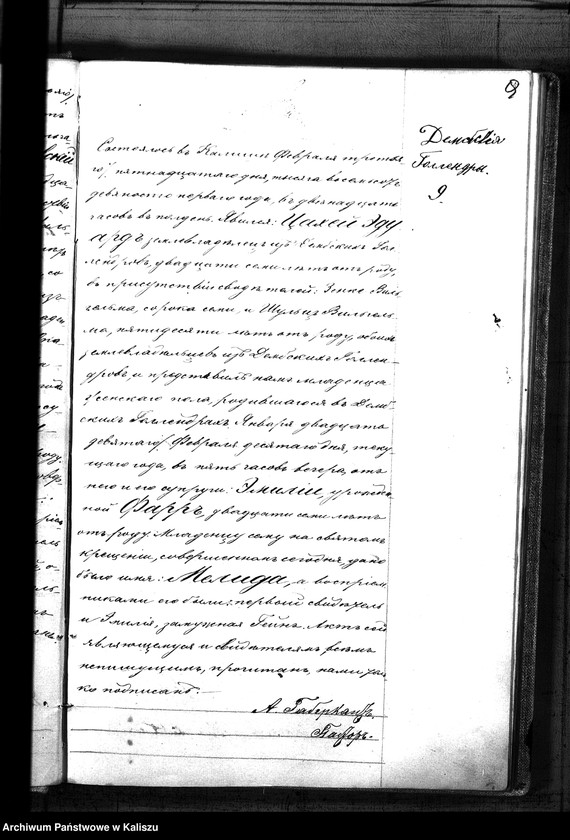 9
Дембскія
Голлендры.
9.
Состоялось въ Калишѣ Февраля третья
го/ пятнадцатаго дня, тысяча восемьсотъ
девяносто перваго года, въ двѣнадцать
часовъ въ полдень. Явился: Цахей Эду
ардъ землевладѣлецъ изъ Дембскихъ Гол
лендровъ, двадцати семи лѣтъ отъ роду,
въ присутствіи свидѣтелей: Вил
гельма, сорока семи, и Шульцъ Вильгель
ма, пятидесяти лѣтъ отъ роду, обоихъ
землевладѣльцевъ изъ Дембскихъ Голлен
дровъ, и представилъ намъ младенца
женскаго пола, родившагося въ Демб
скихъ Голлендрахъ Января двадцать
девятаго/ Февраля десятаго дня, теку
щаго года, въ пять часовъ вечера, отъ
него и его супруги: Эмиліи, урожден
ной Фарръ, двадцати семи лѣтъ
отъ роду. Младенцу сему на святомъ
крещеніи, совершенномъ сегодня, дано
было имя: Мелида, а воспріем
никами его были: первый свидѣтель
и Эмилія, замужная Гейнъ. Актъ сей
являющемуся и свидѣтелямъ всѣмъ
неписьмущимъ, прочитанъ, нами толь
ко подписанъ.—
А. Габеркантъ
Пасторъ.
Archiwum Państwowe w Kaliszu